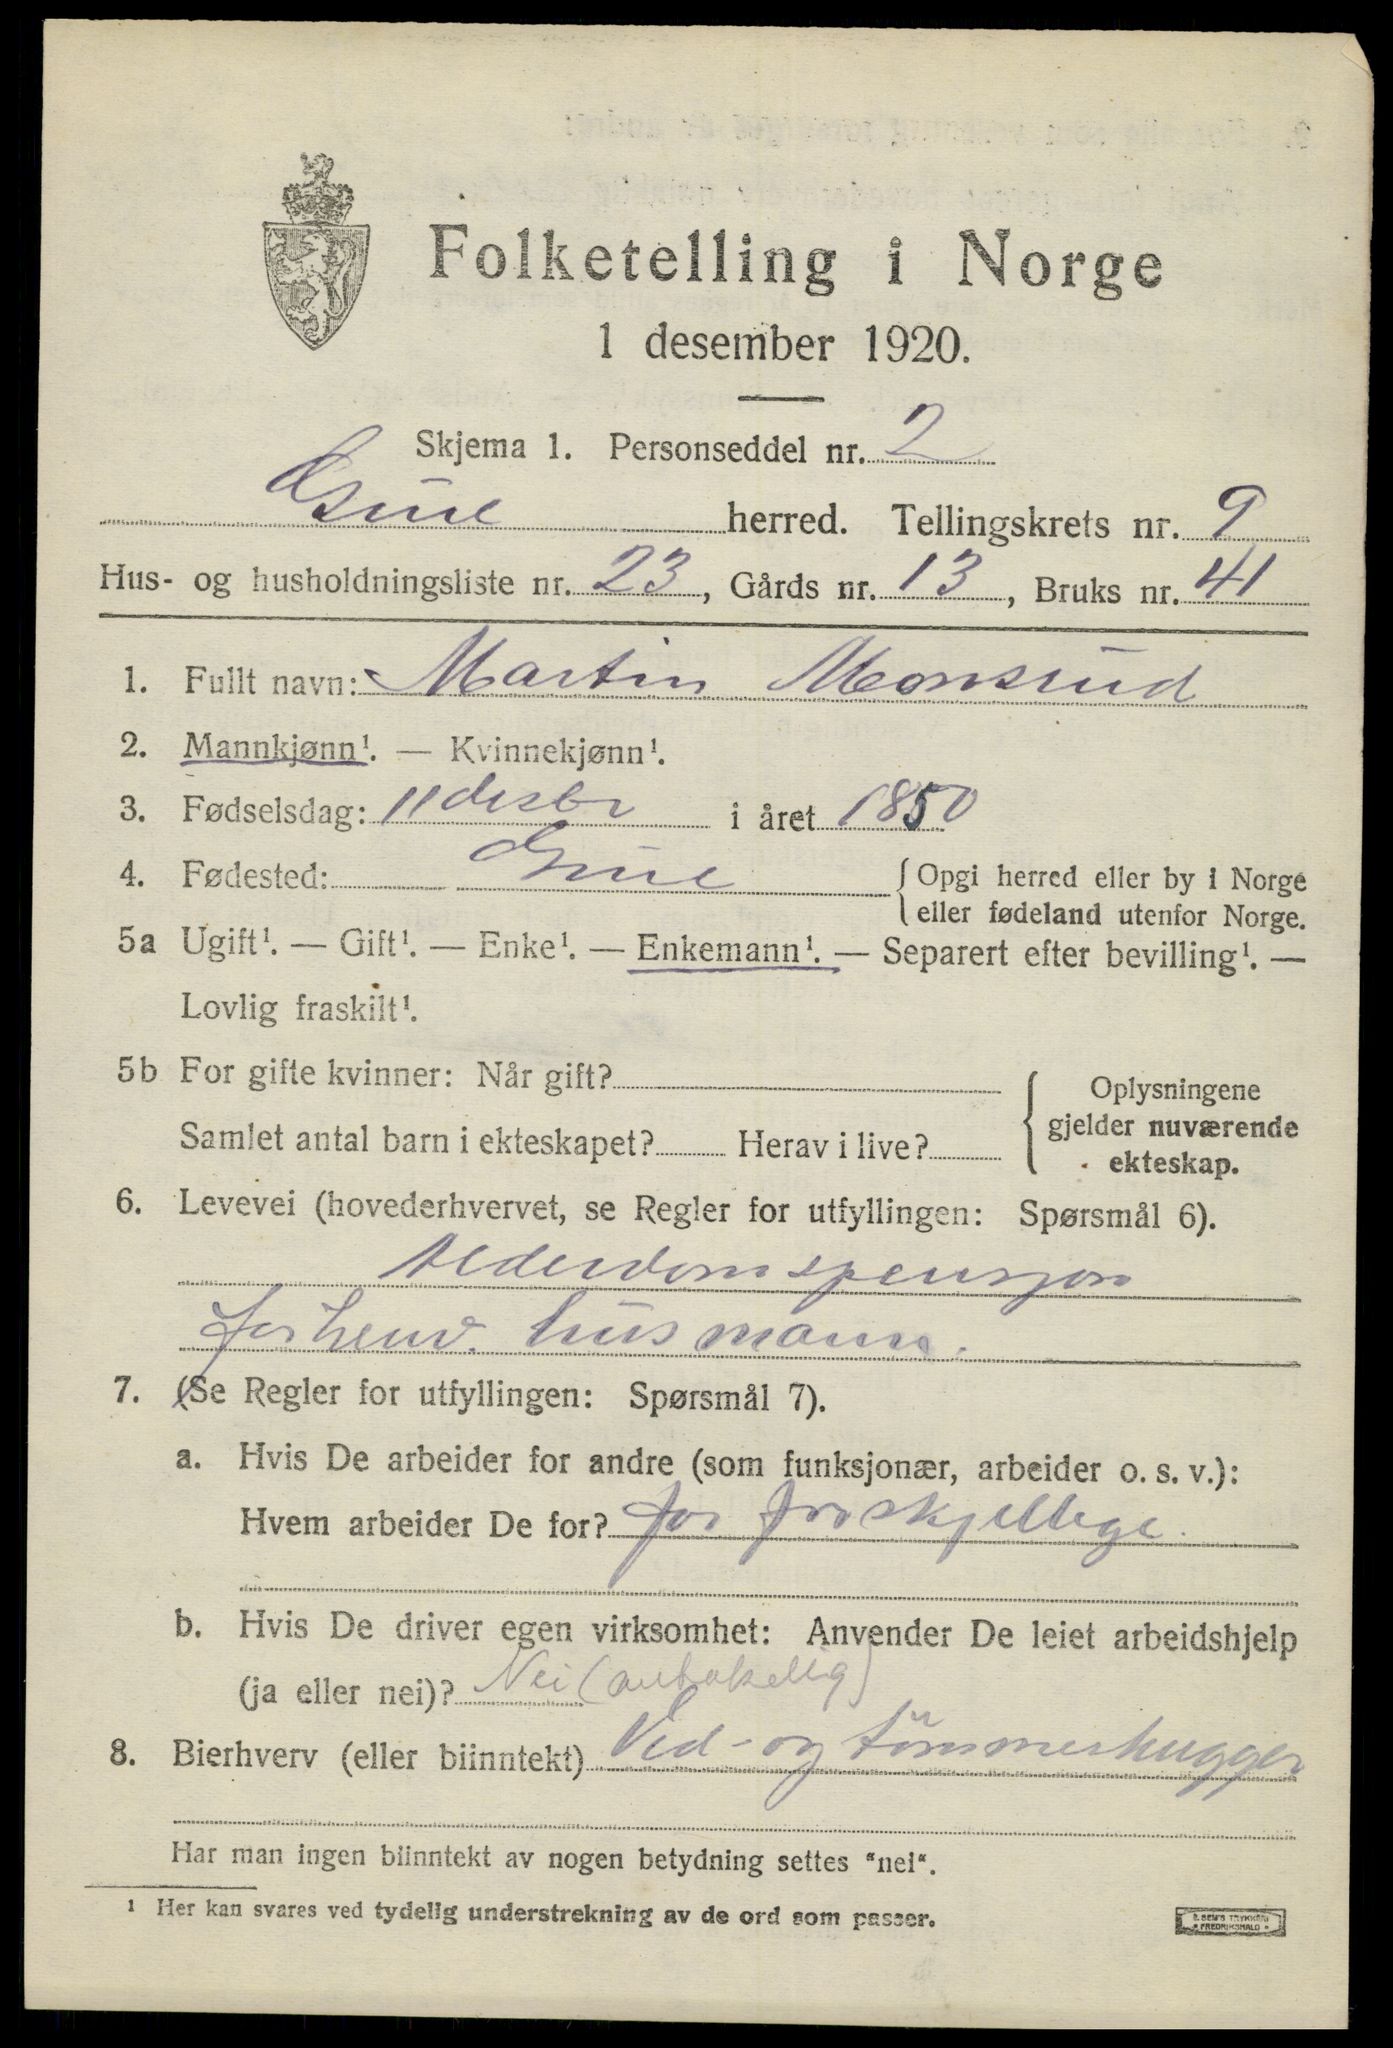 Folketelling i Norge
1 desember 1920.
Skjema 1. Personseddel nr. 2
Grue herred. Tellingskrets nr. 9
Hus- og husholdningsliste nr. 23, Gårds nr. 13, Bruks nr. 41
1. Fullt navn: Martin Monsrud
2. Mannkjønn¹. — Kvinnekjønn¹.
3. Fødselsdag: 11 desbr i året 1850
4. Fødested: Grue { Opgi herred eller by i Norge
eller fødeland utenfor Norge.
5a Ugift¹. — Gift¹. — Enke¹. — Enkemann¹. — Separert efter bevilling¹. —
Lovlig fraskilt¹.
5b For gifte kvinner: Når gift?
Samlet antal barn i ekteskapet? Herav i live?
Oplysningene
gjelder nuværende
ekteskap.
6. Levevei (hovederhvervet, se Regler for utfyllingen: Spørsmål 6).
Alderdomspensjon
forhenv. husmann.
7. (Se Regler for utfyllingen: Spørsmål 7).
a. Hvis De arbeider for andre (som funksjonær, arbeider o. s. v.):
Hvem arbeider De for? for forskjellige.
b. Hvis De driver egen virksomhet: Anvender De leiet arbeidshjelp
(ja eller nei)? Nei
8. Bierhverv (eller biinntekt) Ved- og tömmerhugger
Har man ingen biinntekt av nogen betydning settes "nei".
¹ Her kan svares ved tydelig understrekning av de ord som passer.